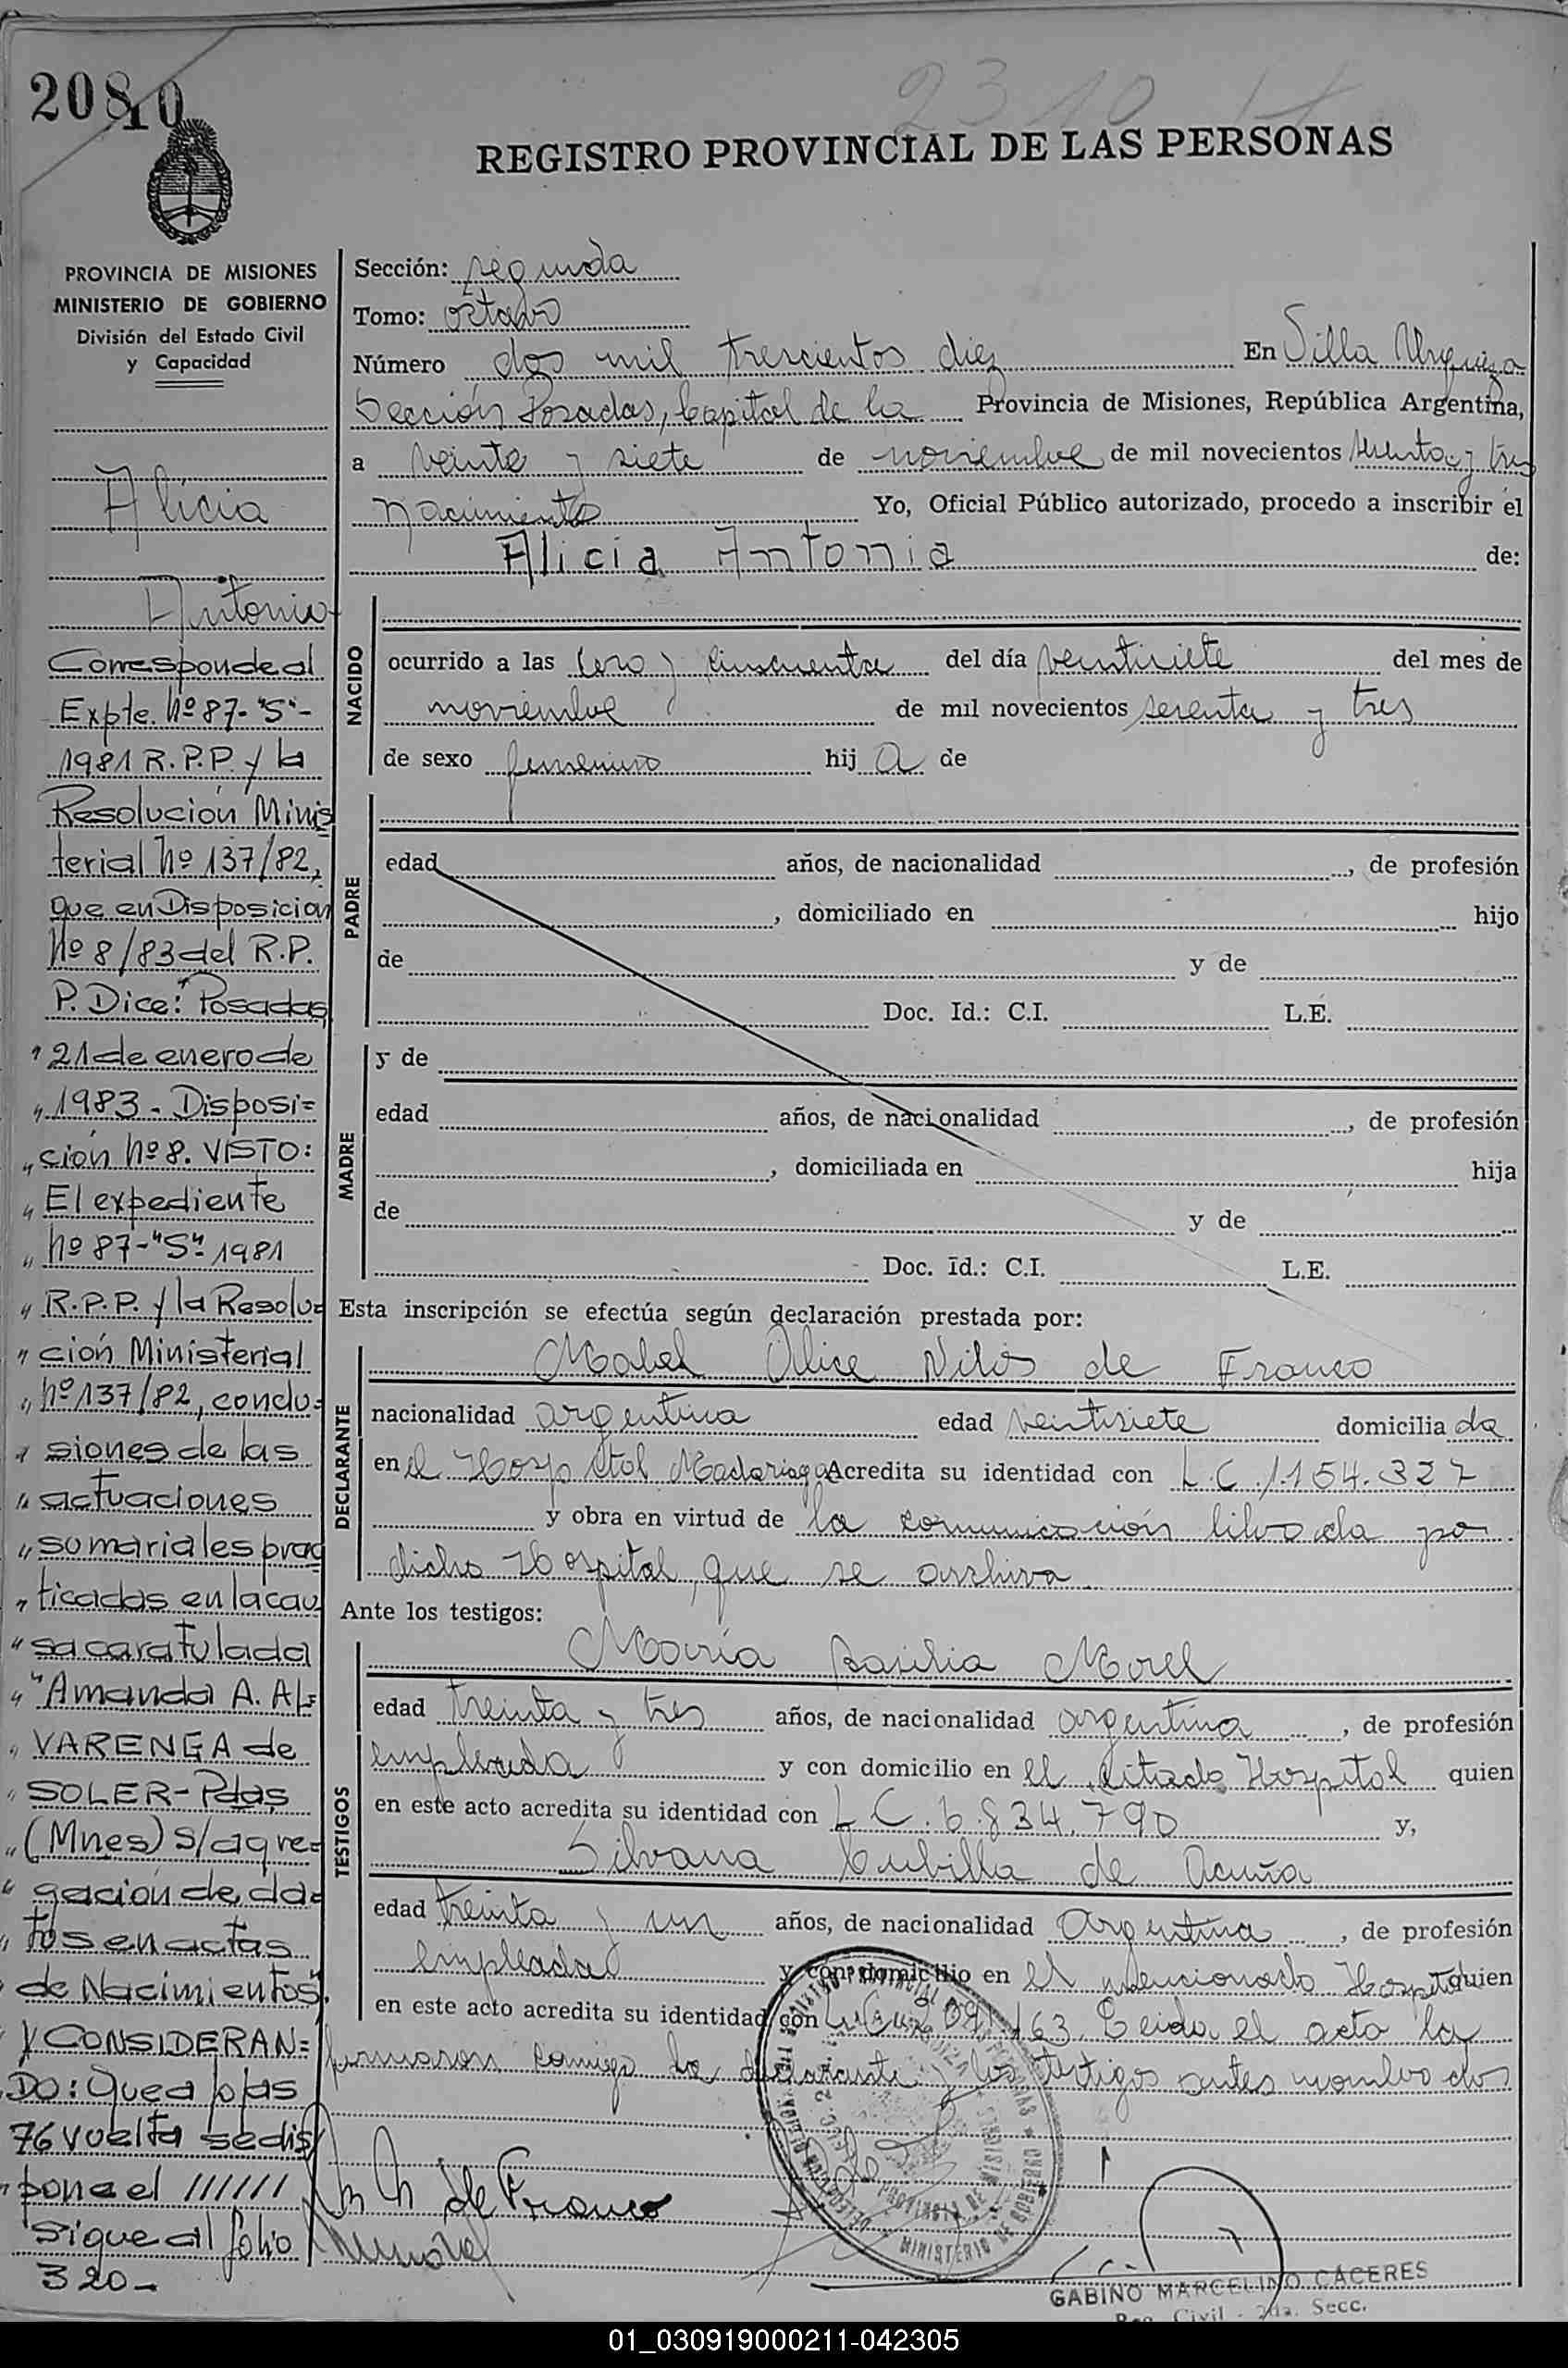 2080
10
2310
REGISTRO PROVINCIAL DE LAS PERSONAS
PROVINCIA DE MISIONES
MINISTERIO DE GOBIERNO
División del Estado Civil
y Capacidad
Alicia
Antonia
Corresponde al
Expte. Nº 87-"S"-
1981 R.P.P. y la
Resolución Minis
terial Nº 137/82,
que en Disposicion
Nº 8/83 del R.P.
P. Dice: "Posadas,
" 21 de enero de
" 1983 - Disposi=
" ción Nº 8. VISTO:
" El expediente
" Nº 87-"S" 1981
" R.P.P. y la Resolu=
" ción Ministerial
" Nº 137/82, conclu=
" siones de las
" actuaciones
" sumariales prac
" ticadas en la cau
" sa caratulada
" "Amanda A. AL=
" VARENGA de
" SOLER-Pdas,
" (Mnes) s/agre=
" gación de da=
" tos en actas
" de Nacimientos",
Y CONSIDERAN=
DO: Que a fojas
76 vuelta se dis
" pone el //////
Sigue al folio
320-
Sección: segunda
Tomo: octavo
Número dos mil trescientos diez En Villa Urquiza
Sección Posadas, Capital de la Provincia de Misiones, República Argentina,
a veinte y siete de noviembre de mil novecientos setenta y tres
nacimiento Yo, Oficial Público autorizado, procedo a inscribir el
Alicia Antonia de:
NACIDO
ocurrido a las cero y cincuenta del día veintisiete del mes de
noviembre de mil novecientos setenta y tres
de sexo femenino hij a de
PADRE
edad años, de nacionalidad , de profesión
, domiciliado en hijo
de y de
Doc. Id.: C.I. L.E.
MADRE
y de
edad años, de nacionalidad , de profesión
, domiciliada en hija
de y de
Doc. Id.: C.I. L.E.
Esta inscripción se efectúa según declaración prestada por:
DECLARANTE
Mabel Alice de Franco
nacionalidad argentina edad veintisiete domicilia da
en el Hospital Madariaga Acredita su identidad con L.C. 1.154.327
y obra en virtud de la comunicación librada por
dicho Hospital, que se archiva
Ante los testigos:
TESTIGOS
María Basilia Morel
edad treinta y tres años, de nacionalidad argentina , de profesión
empleada y con domicilio en el citado Hospital quien
en este acto acredita su identidad con L C. 6.834.790 y,
Silvana Cubilla de Acuña
edad treinta y un años, de nacionalidad argentina , de profesión
empleada y con domicilio en el mencionado Hospital quien
en este acto acredita su identidad con 163. Leida el acta la
firmaron conmigo la declarante y los testigos antes nombrados
de Franco
GABINO MARCELINO CÁCERES
Reg. Civil - 2da. Secc.
01_030919000211-042305